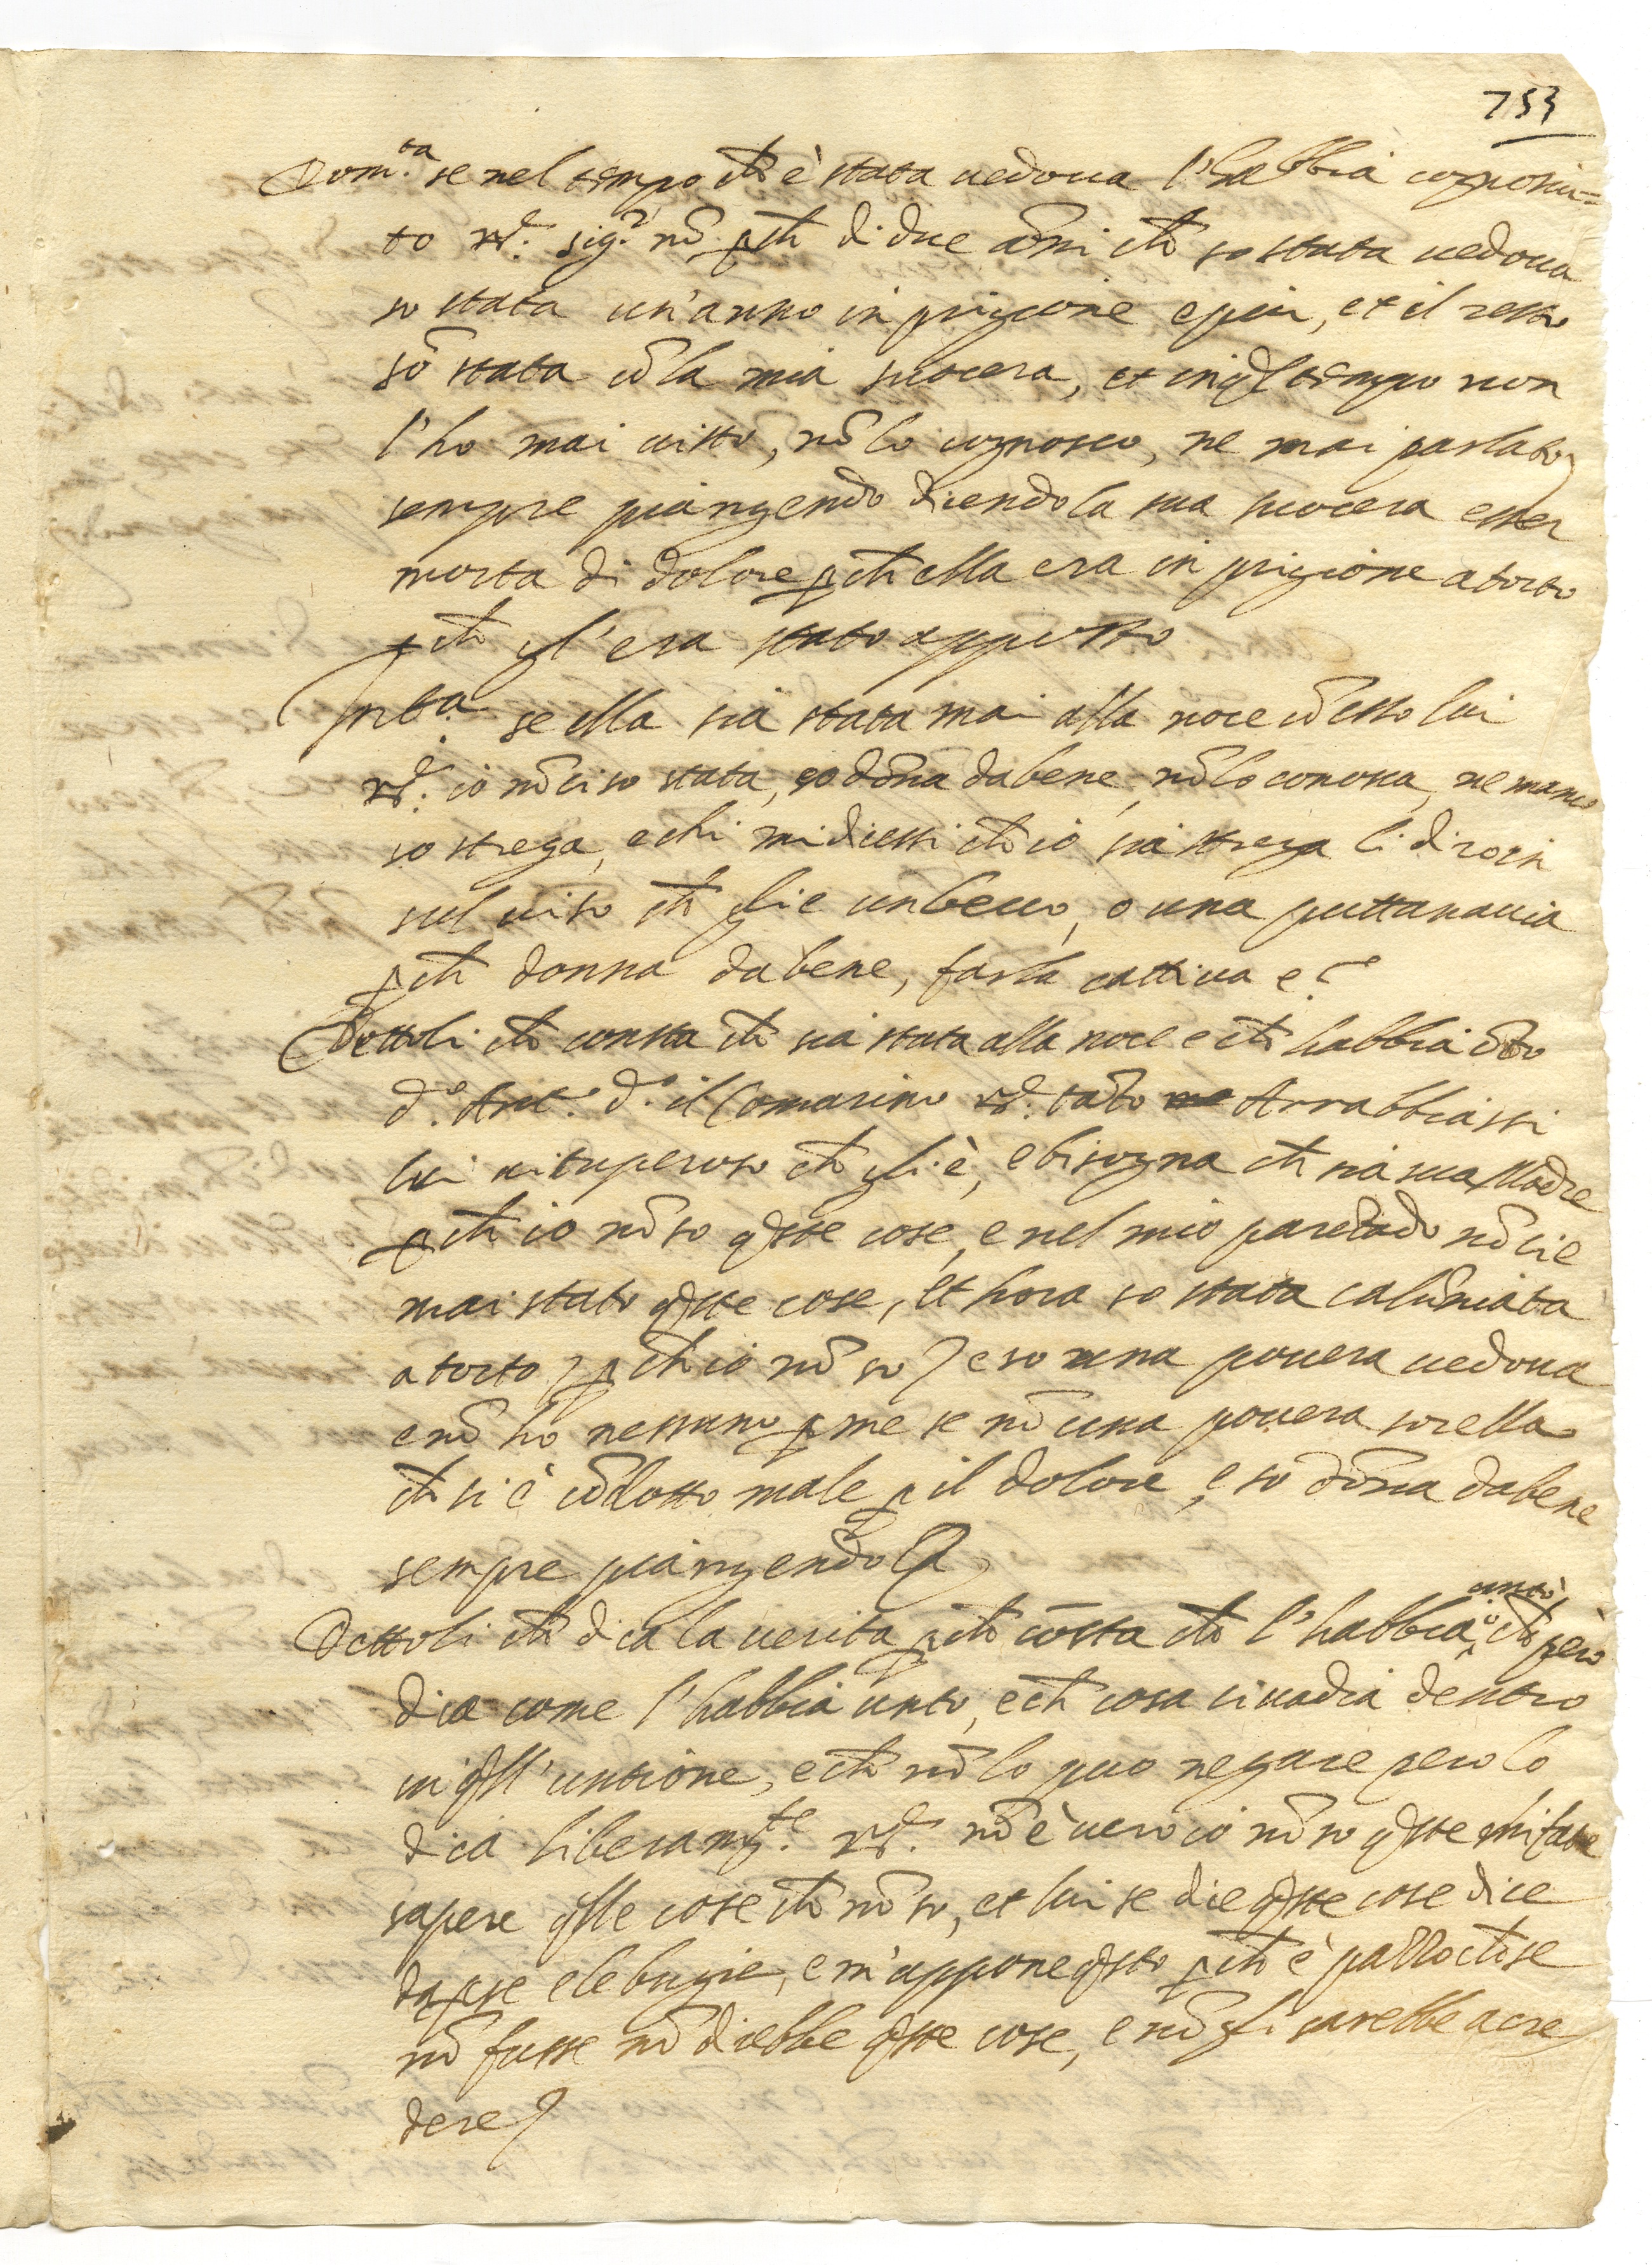 753
Dom.ta se nel tempo ch è stata uedoua l'habbia cognosciu=
to Rd. sig.r nō pch di due āni ch so stata uedoua
so stata un'anno in prigione e piu, et il resto
sō stata cō la mia suocera, et in ql tempo non
l'ho mai uisto, nō lo cognosco, ne mai parlato
sempre piangendo dicendo la sua suocera esser
morta di dolore pch ella era in prigione a torto
pch gl'era stato apposto
Int.a se ella sia stata mai alla noce cō esso lui
Rd. io nō ci so stata, so dōna da bene, nō lo conosca, ne manco
so strega, e chi mi dicessi ch io sia strega li diro in
sul uiso ch gli e un becco, o una puttanaccia
pch donna da bene, farla cattiua e?
Dettoli ch consta ch sia stata alla noce e ch habbia ōto
d.o Ant.o d.o il Comarino Rd. tāto Arrabbiassi
lui uituperoso ch gli è, e bisogna ch sia sua Madre
pch io nō so qste cose, e nel mio parētado nō ci e
mai stato qste cose, et hora so stata calūniata
a torto, pch io nō so, e so una pouera uedoua
e nō ho nessuno p me se nō una pouera sorella
ch si è cōdotto male p il dolore, e so dōna da bene
sempre piangendo
Dettoli ch dica la uerita pch cōsta ch l'habbia unto, ch però
dica come l'habbia unto, e ch cosa ci uadia dentro
in qll'untione, e ch nō lo puo negare pero lo
dica liberam.te Rd. nō è uero io nō so qste mi fate
sapere qlle cose ch nō so, et lui se dice qste cose dice
da pse e le bugie, e m'appone qsto pch è pazzo ch se
nō fusse nō direbbe qste cose, e nō gli sarebbe a cre
dere